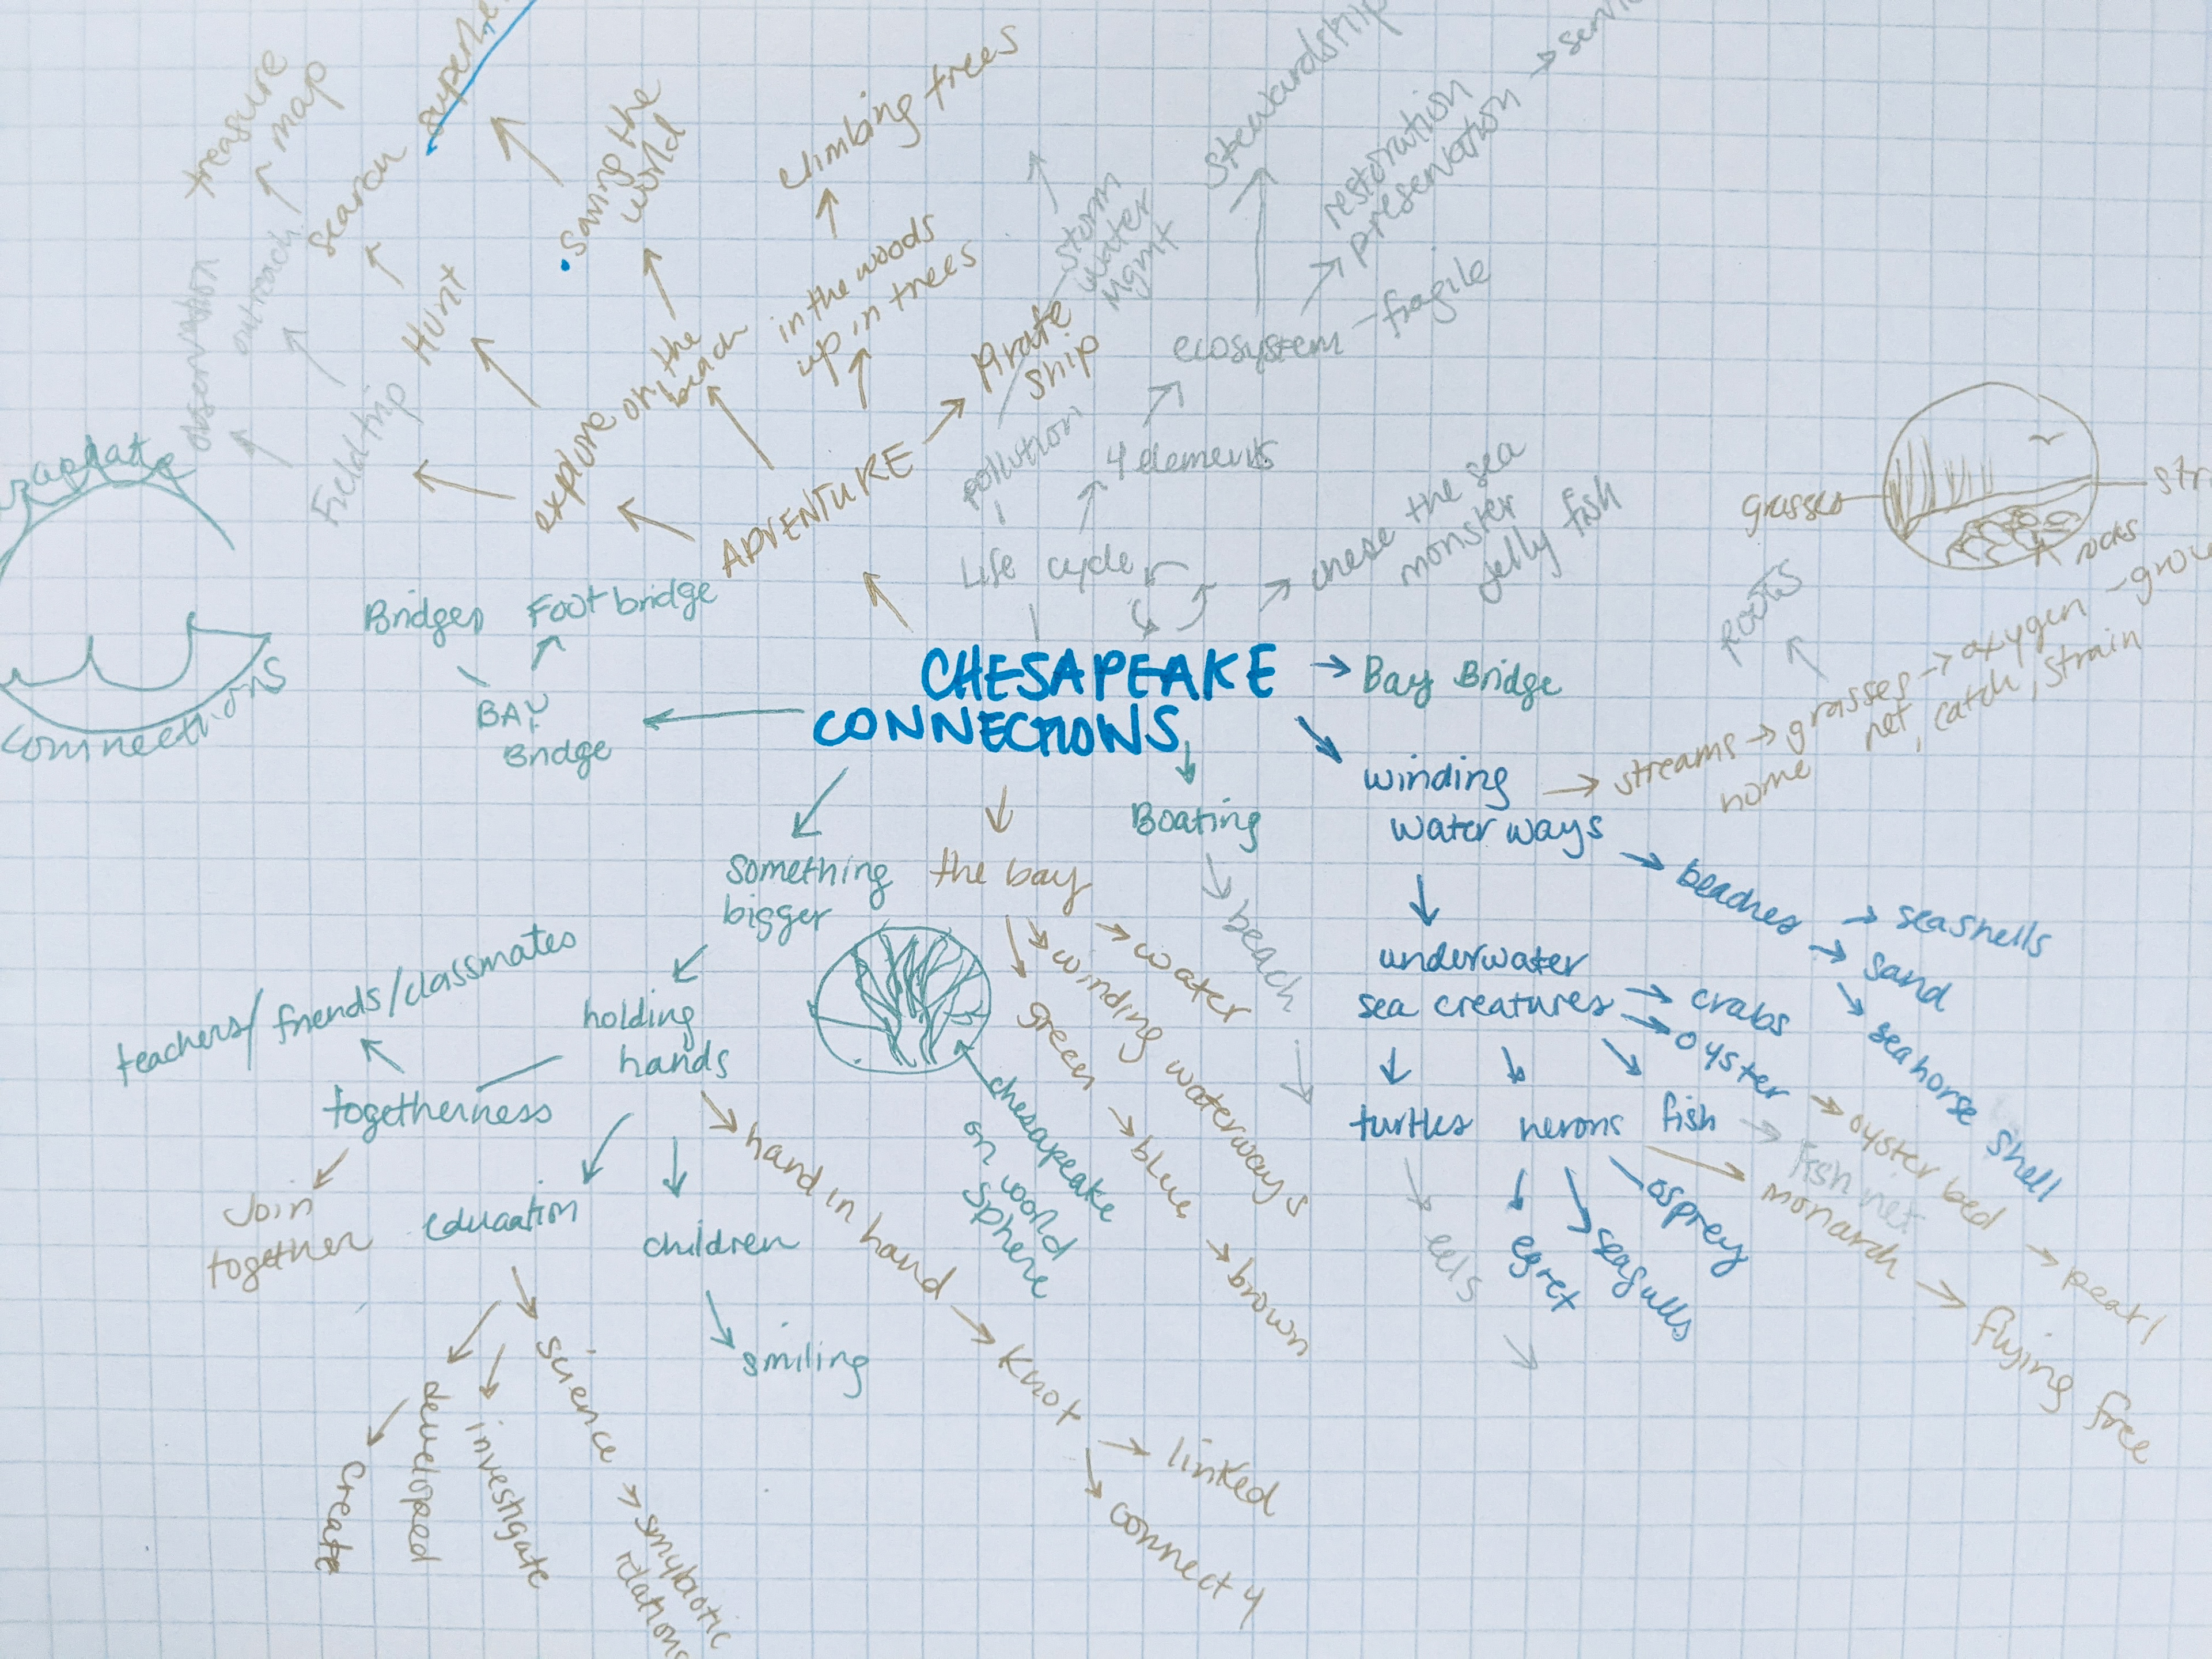 treasure
map
search
saving the
world
climbing trees
stewardship
restoration
preservation
storm
water
Mgmt
observation
outreach
Hunt
on the
beach
in the woods
up in trees
Pirate
ship
ecosystem
fragile
Field trip
explore
ADVENTURE
pollution
4 elements
Life cycle
chese the sea
monster
jelly fish
grasses
rocks
roots
Bridges
Foot bridge
BAY
Bridge
connections
CHESAPEAKE
CONNECTIONS
Bay Bridge
winding
water ways
streams
grasses
oxygen
home
net, catch, strain
something
bigger
the bay
Boating
beach
beaches
seashells
sand
seahorse shell
underwater
sea creatures
crabs
oyster
oyster bed
pearl
turtles
herons
fish
fish net
monarch
flying free
eels
egret
seagulls
osprey
water
winding waterways
green
blue
brown
chesapeake
on world
sphere
teachers/friends/classmates
holding
hands
togetherness
Join
together
education
children
smiling
hand in hand
Knot
linked
connect 4
create
developed
investigate
science
smybiotic